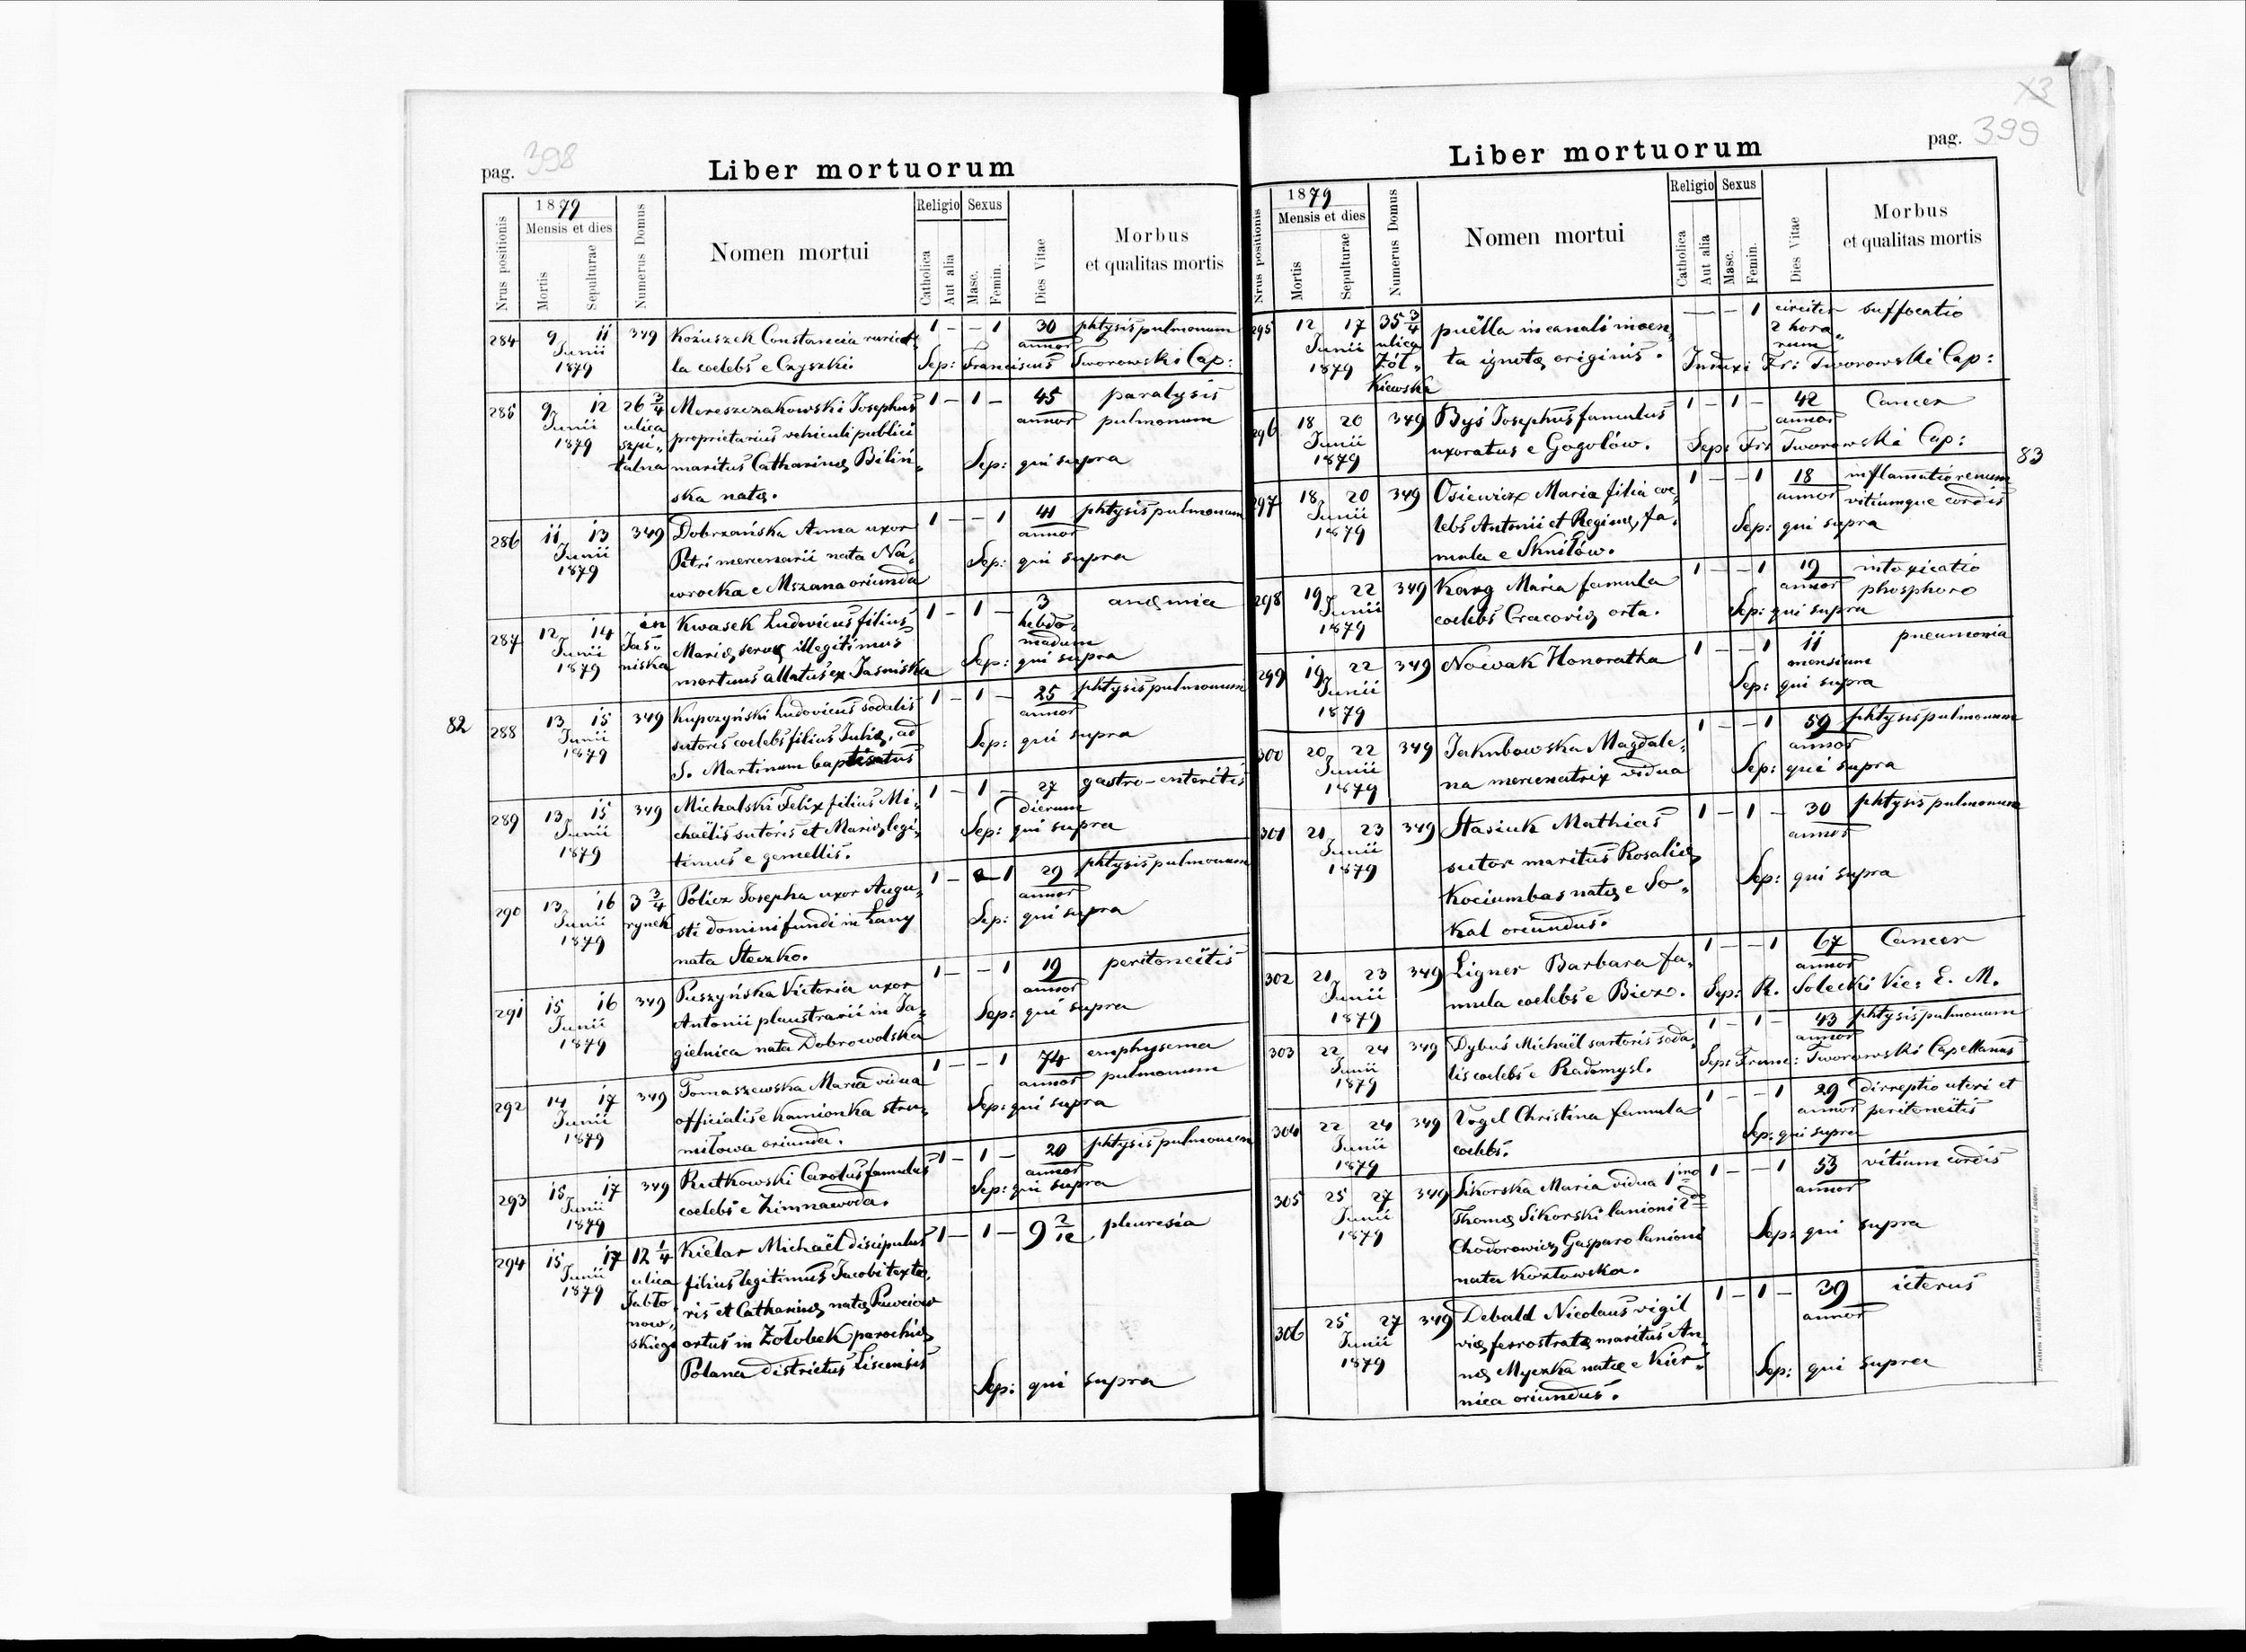 pag. 398
Liber mortuorum
Nrus positionis
1879
Mensis et dies
Mortis
Sepulturae
Numerus Domus
Nomen mortui
Religio
Catholica
Aut alia
Sexus
Masc.
Femin.
Dies Vitae
Morbus
et qualitas mortis
284 9 11 349 Kożuszek Constancia rurico- 1 — — 1 30 phtysis pulmonum
Junii la coelebs e Czyszki. annor
1879 Sep: Franciscus Tworowski Cap:
285 9 12 26 3/4 Mereszczakowski Josephus 1 — 1 — 45 paralysis
Junii ulica proprietarius vehiculi publici annor pulmonum
1879 szpi„ maritus Catharinę Biliń„ Sep: qui supra
talna ska natę.
286 11 13 349 Dobrzańska Anna uxor 1 — — 1 41 phtysis pulmonum
Junii Petri mercenarii nata Na„ annor
1879 wrocka e Mszana oriunda Sep: qui supra
287 12 14 in Kwasek Ludovicus filius 1 — 1 — 3 anęmia
Junii Jaś„ Marię servę illegitimus hebdo„
1879 niska mortuus allatus ex Jasniska madum
Sep: qui supra
82
288 13 15 349 Kupczyński Ludovicus sodalis 1 — 1 — 25 phtysis pulmonum
Junii sutoris coelebs filius Julię, ad annor
1879 S. Martinum baptisatus Sep: qui supra
289 13 15 349 Michalski Felix filius Mi„ 1 — 1 — 27 gastro-enteritis
Junii chaëlis sutoris et Marię legi„ dierum
1879 timus e gemellis. Sep: qui supra
290 13 16 3 3/4 Policz Josepha uxor Augu„ 1 — — 1 29 phtysis pulmonum
Junii rynek sti domini fundi in Łany annor
1879 nata Steczko. Sep: qui supra
291 15 16 349 Puszyńska Victoria uxor 1 — — 1 19 peritoneïtis
Junii Antonii plaustrarii in Ja„ annor
1879 gielnica nata Dobrowolska Sep: qui supra
292 14 17 349 Tomaszewska Maria vidua 1 — — 1 74 emphysema
Junii officialis e Kamionka stru„ annor pulmonum
1879 miłowa oriunda. Sep: qui supra
293 15 17 349 Rutkowski Carolus famulus 1 — 1 — 20 phtysis pulmonum
Junii coelebs e Zimnawoda. annor
1879 Sep: qui supra
294 15 17 12 1/4 Kielar Michaël discipulus 1 — 1 — 9 2/12 pleuresia
Junii ulica filius legitimus Jacobi texto„
1879 Jabło„ ris et Catharinę natę
now„ ortus in Żołobek parochię
skiego Polana districtus Liscensis
Sep: qui supra
Liber mortuorum
pag. 399
Nrus positionis
1879
Mensis et dies
Mortis
Sepulturae
Numerus Domus
Nomen mortui
Religio
Catholica
Aut alia
Sexus
Masc.
Femin.
Dies Vitae
Morbus
et qualitas mortis
295 12 17 35 3/4 puëlla in canali inven„ — — 1 circiter suffocatio
Junii ulica ta ignotę originis. 2 hora„
1879 Żół„ rum
kiewska Induxi Fr: Tworowski Cap:
296 18 20 349 Byś Josephus famulus 1 — 1 — 42 Cancer
Junii uxoratus e Gogolów. annor
1879 Sep: Frs Tworowski Cap:
83
297 18 20 349 Osiewicz Maria filia coe„ 1 — — 1 18 inflamatio renum
Junii lebs Antonii et Reginę, fa„ annor vitiumque cordis
1879 mula e Skniłów. Sep: qui supra
298 19 22 349 Karg Maria famula 1 — — 1 19 intoxicatio
Junii coelebs Cracovię orta. annor phosphoro
1879 Sep: qui supra
299 19 22 349 Nowak Honoratha 1 — — 1 11 pneumonia
Junii mensium
1879 Sep: qui supra
300 20 22 349 Jakubowska Magdale„ 1 — — 1 59 phtysis pulmonum
Junii na mercenatrix vidua annor
1879 Sep: qui supra
301 21 23 349 Stasiuk Mathias 1 — 1 — 30 phtysis pulmonum
Junii sutor maritus Rosalię annor
1879 Kociumbas natę e So„ Sep: qui supra
kal oriundus.
302 21 23 349 Ligner Barbara fa„ 1 — — 1 67 Cancer
Junii mula coelebs e Biecz. annor
1879 Sep: R. Solecki Vic: E. M.
303 22 24 349 Dybuś Michaël sartoris soda„ 1 — 1 — 43 phtysis pulmonum
Junii lis coelebs e Radomysl. annor
1879 Sep: Franc: Tworowski Capellanus
304 22 24 349 Vogel Christina famula 1 — — 1 29 dirreptio uteri et
Junii coelebs. annor peritoneïtis
1879 Sep: qui supra
305 25 27 349 Sikorska Maria vidua 1mo 1 — — 1 53 vitium cordis
Junii Thomę Sikorski lanioni 2do annor
1879 Chodorowicz Gasparo lanioni Sep: qui supra
nata Kozłowska.
306 25 27 349 Debald Nicolaus vigil 1 — 1 — 39 icterus
Junii vię ferrostratę maritus An„ annor
1879 nę Myczka natę e Kier„ Sep: qui supra
nica oriundus.